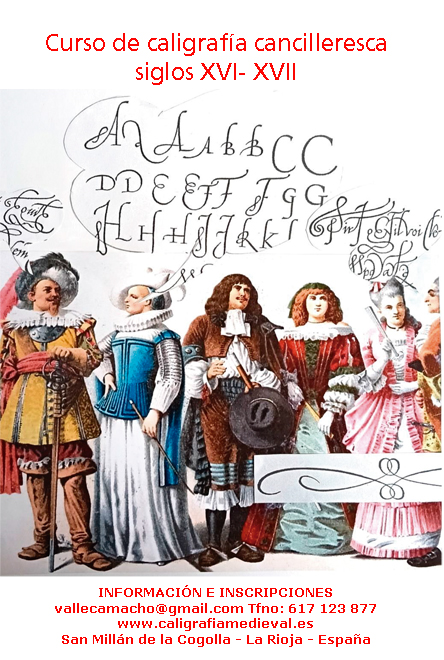 Curso de caligrafía cancilleresca
siglos XVI- XVII
A A A A b b B C C
D D E E F F F G G G
H H H H I J J R K I
INFORMACIÓN E INSCRIPCIONES
vallecamacho@gmail.com Tfno: 617 123 877
www.caligrafiamedieval.es
San Millán de la Cogolla - La Rioja - España